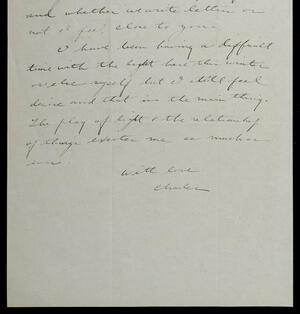 and whether we write letters or
not I feel close to you.
I have been having a difficult
time with the light here this winter
or else myself but I still feel
and that is the main thing.
The play of light & the relationship
of things excites me as much as
ever.
With love
Charles